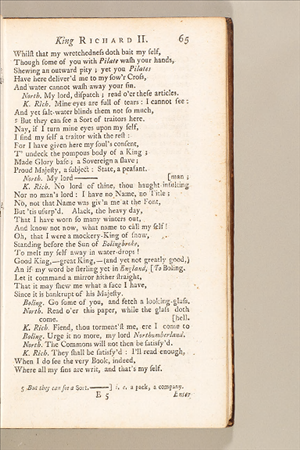 King RICHARD II. 65
Whilst that my wretchedness doth bait my self,
Though some of you with Pilate wash your hands,
Shewing an outward pity ; yet you Pilates
Have here deliver'd me to my sow'r Cross,
And water cannot wash away your sin.
North. My lord, dispatch ; read o'er these articles.
K. Rich. Mine eyes are full of tears : I cannot see :
And yet salt-water blinds them not so much,
5 But they can see a Sort of traitors here.
Nay, if I turn mine eyes upon my self,
I find my self a traitor with the rest :
For I have given here my soul's consent,
T' undeck the pompous body of a King ;
Made Glory base ; a Sovereign a slave ;
Proud Majesty, a subject : State, a peasant.
North. My lord ——— [man ;
K. Rich. No lord of thine, thou haught-insulting
Nor no man's lord : I have no Name, no Title :
No, not that Name was giv'n me at the Font,
But 'tis usurp'd. Alack, the heavy day,
That I have worn so many winters out,
And know not now, what name to call my self !
Oh, that I were a mockery-King of snow,
Standing before the Sun of Bolingbroke,
To melt my self away in water-drops !
Good King,—great King,—(and yet not greatly good,)
An if my word be sterling yet in England, [To Boling.
Let it command a mirror hither straight,
That it may shew me what a face I have,
Since it is bankrupt of his Majesty.
Boling. Go some of you, and fetch a looking-glass.
North. Read o'er this paper, while the glass doth
come. [hell.
K. Rich. Fiend, thou torment'st me, ere I come to
Boling. Urge it no more, my lord Northumberland.
North. The Commons will not then be satisfy'd.
K. Rich. They shall be satisfy'd : I'll read enough,
When I do see the very Book, indeed,
Where all my sins are writ, and that's my self.
5 But they can see a Sort.———] i. e. a pack, a company.
E 5 Enter